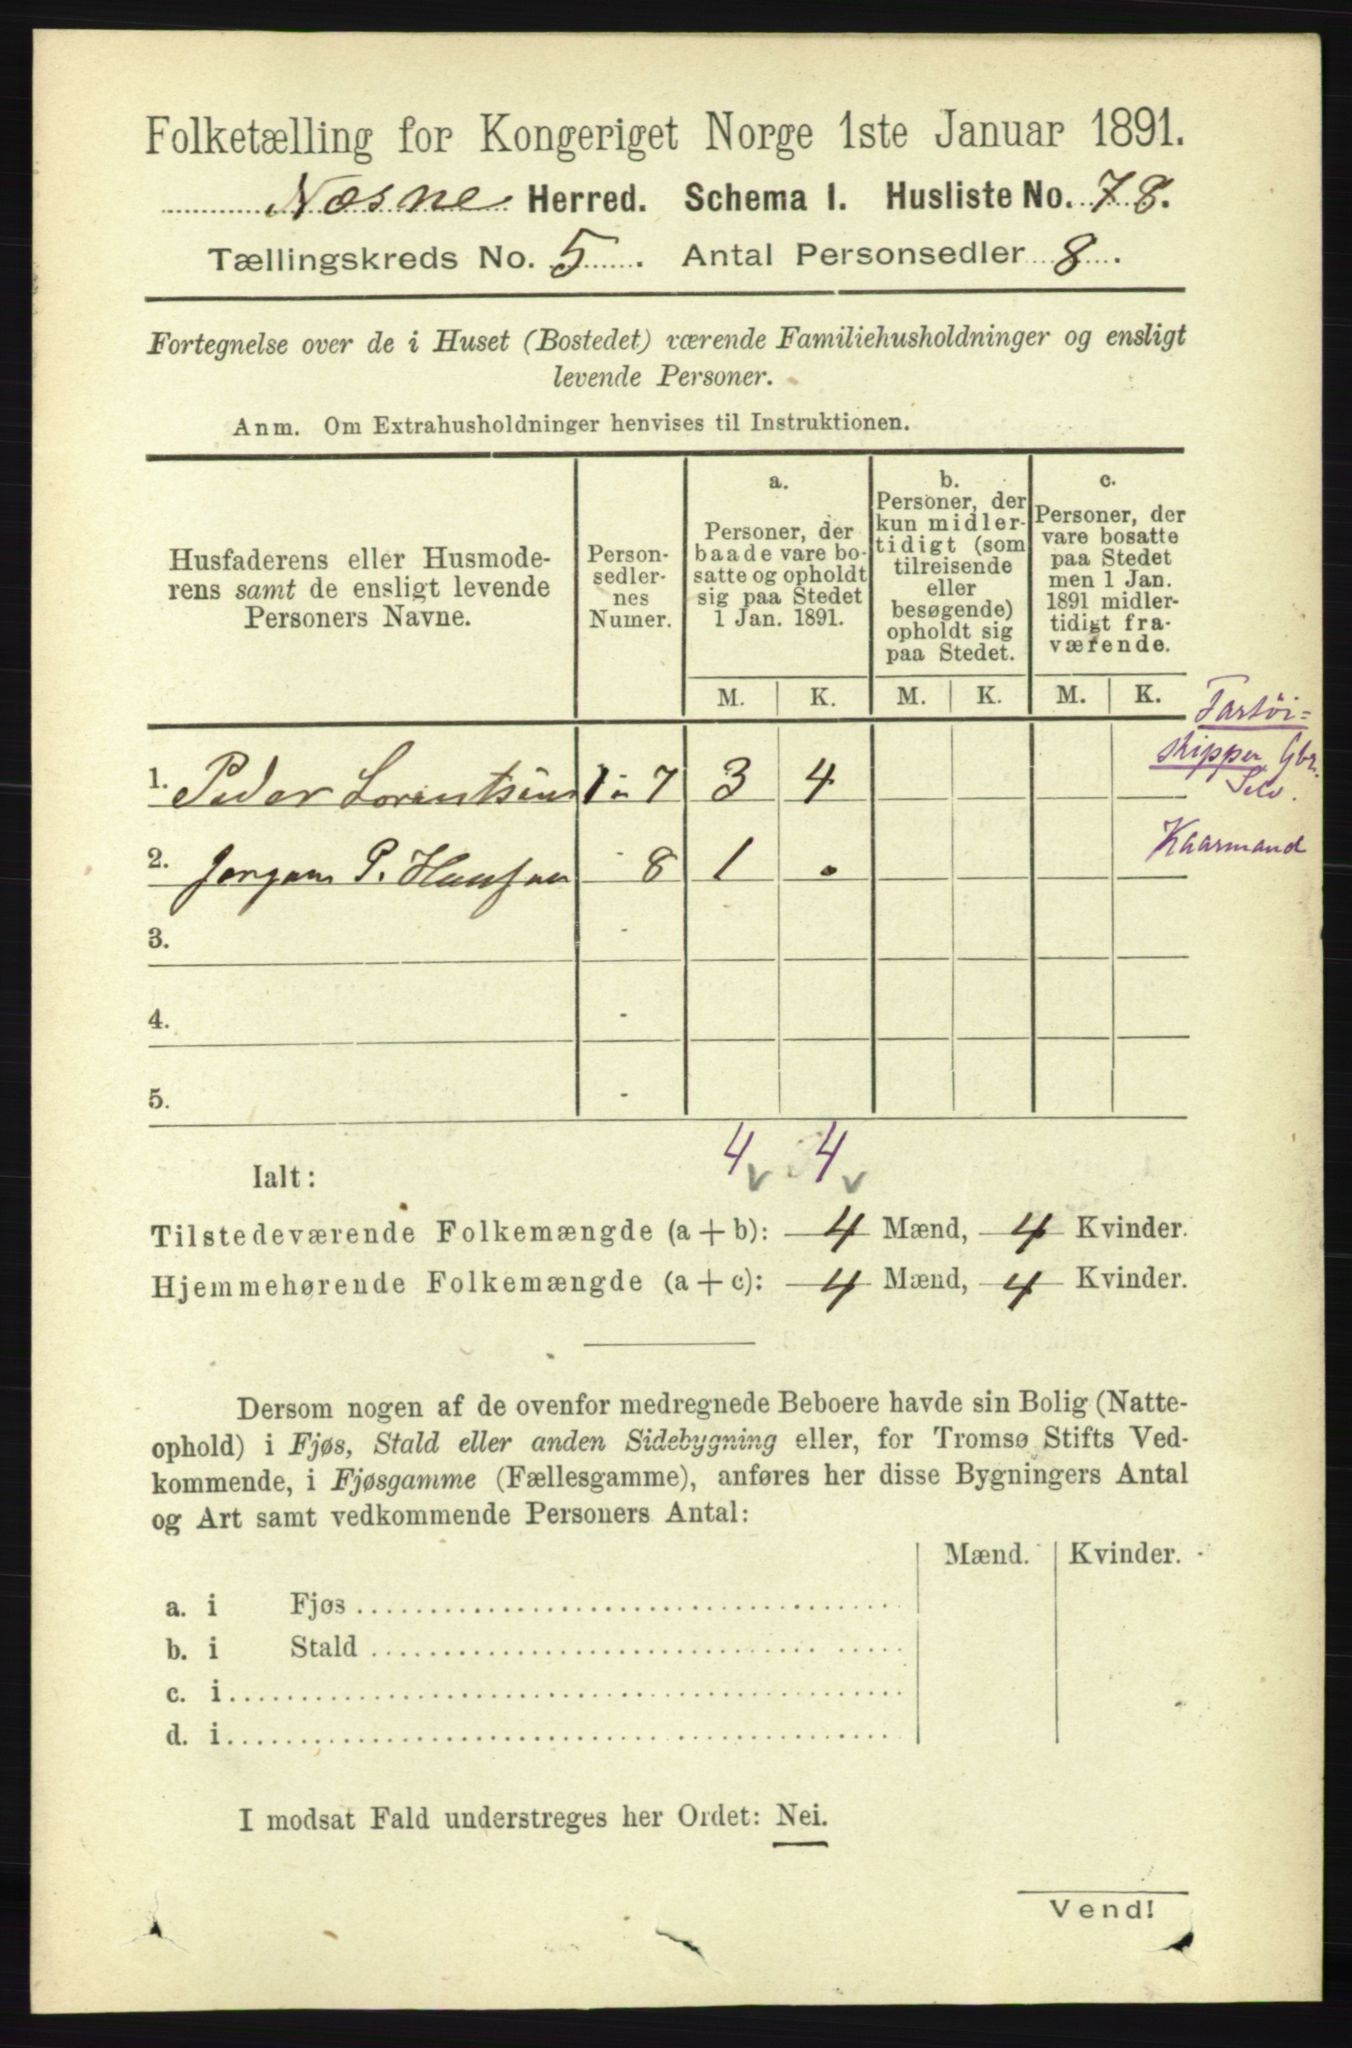 Folketælling for Kongeriget Norge 1ste Januar 1891.
Næsne Herred. Schema I. Husliste No. 78.
Tællingskreds No. 5. Antal Personsedler 8.
Fortegnelse over de i Huset (Bostedet) værende Familiehusholdninger og ensligt
levende Personer.
Anm. Om Extrahusholdninger henvises til Instruktionen.
Husfaderens eller Husmode-
rens samt de ensligt levende
Personers Navne.
Person-
sedler-
nes
Numer.
a.
Personer, der
baade vare bo-
satte og opholdt
sig paa Stedet
1 Jan. 1891.
b.
Personer, der
kun midler-
tidigt (som
tilreisende
eller
besøgende)
opholdt sig
paa Stedet.
c.
Personer, der
vare bosatte
paa Stedet
men 1 Jan.
1891 midler-
tidigt fra-
værende.
M. K. M. K. M. K.
Fartöi-
skipper Gbr.
Selv.
1. Peder Lorentsen 1 - 7 3 4
Kaarmand
2. Jørgen P. Hansen - 8 1 •
3. -
4. -
5. -
4 4
Ialt:
Tilstedeværende Folkemængde (a + b): 4 Mænd, 4 Kvinder.
Hjemmehørende Folkemængde (a + c): 4 Mænd, 4 Kvinder.
Dersom nogen af de ovenfor medregnede Beboere havde sin Bolig (Natte-
ophold) i Fjøs, Stald eller anden Sidebygning eller, for Tromsø Stifts Ved-
kommende, i Fjøsgamme (Fællesgamme), anføres her disse Bygningers Antal
og Art samt vedkommende Personers Antal:
Mænd. Kvinder.
a. i Fjøs
b. i Stald
c. i
d. i
I modsat Fald understreges her Ordet: Nei.
Vend!